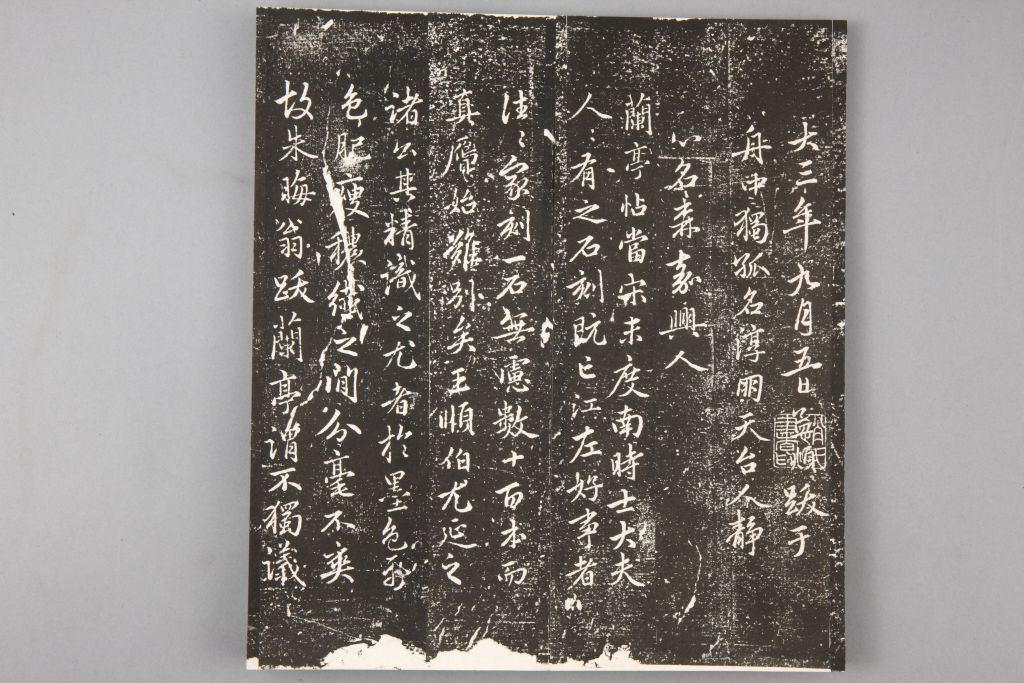 大三年九月五日 跋于
舟中獨孤名淳朋天台人靜
心名森嘉興人
蘭亭帖當宋未度南時士大夫
人〻有之石刻既亡江左好事者
往〻家刻一石無慮數十百本而
真贗始難別矣王順伯尤延之
諸公其精識之尤者於墨色形
色肥瘦穠纖之間分毫不爽
故朱晦翁跋蘭亭謂不獨議